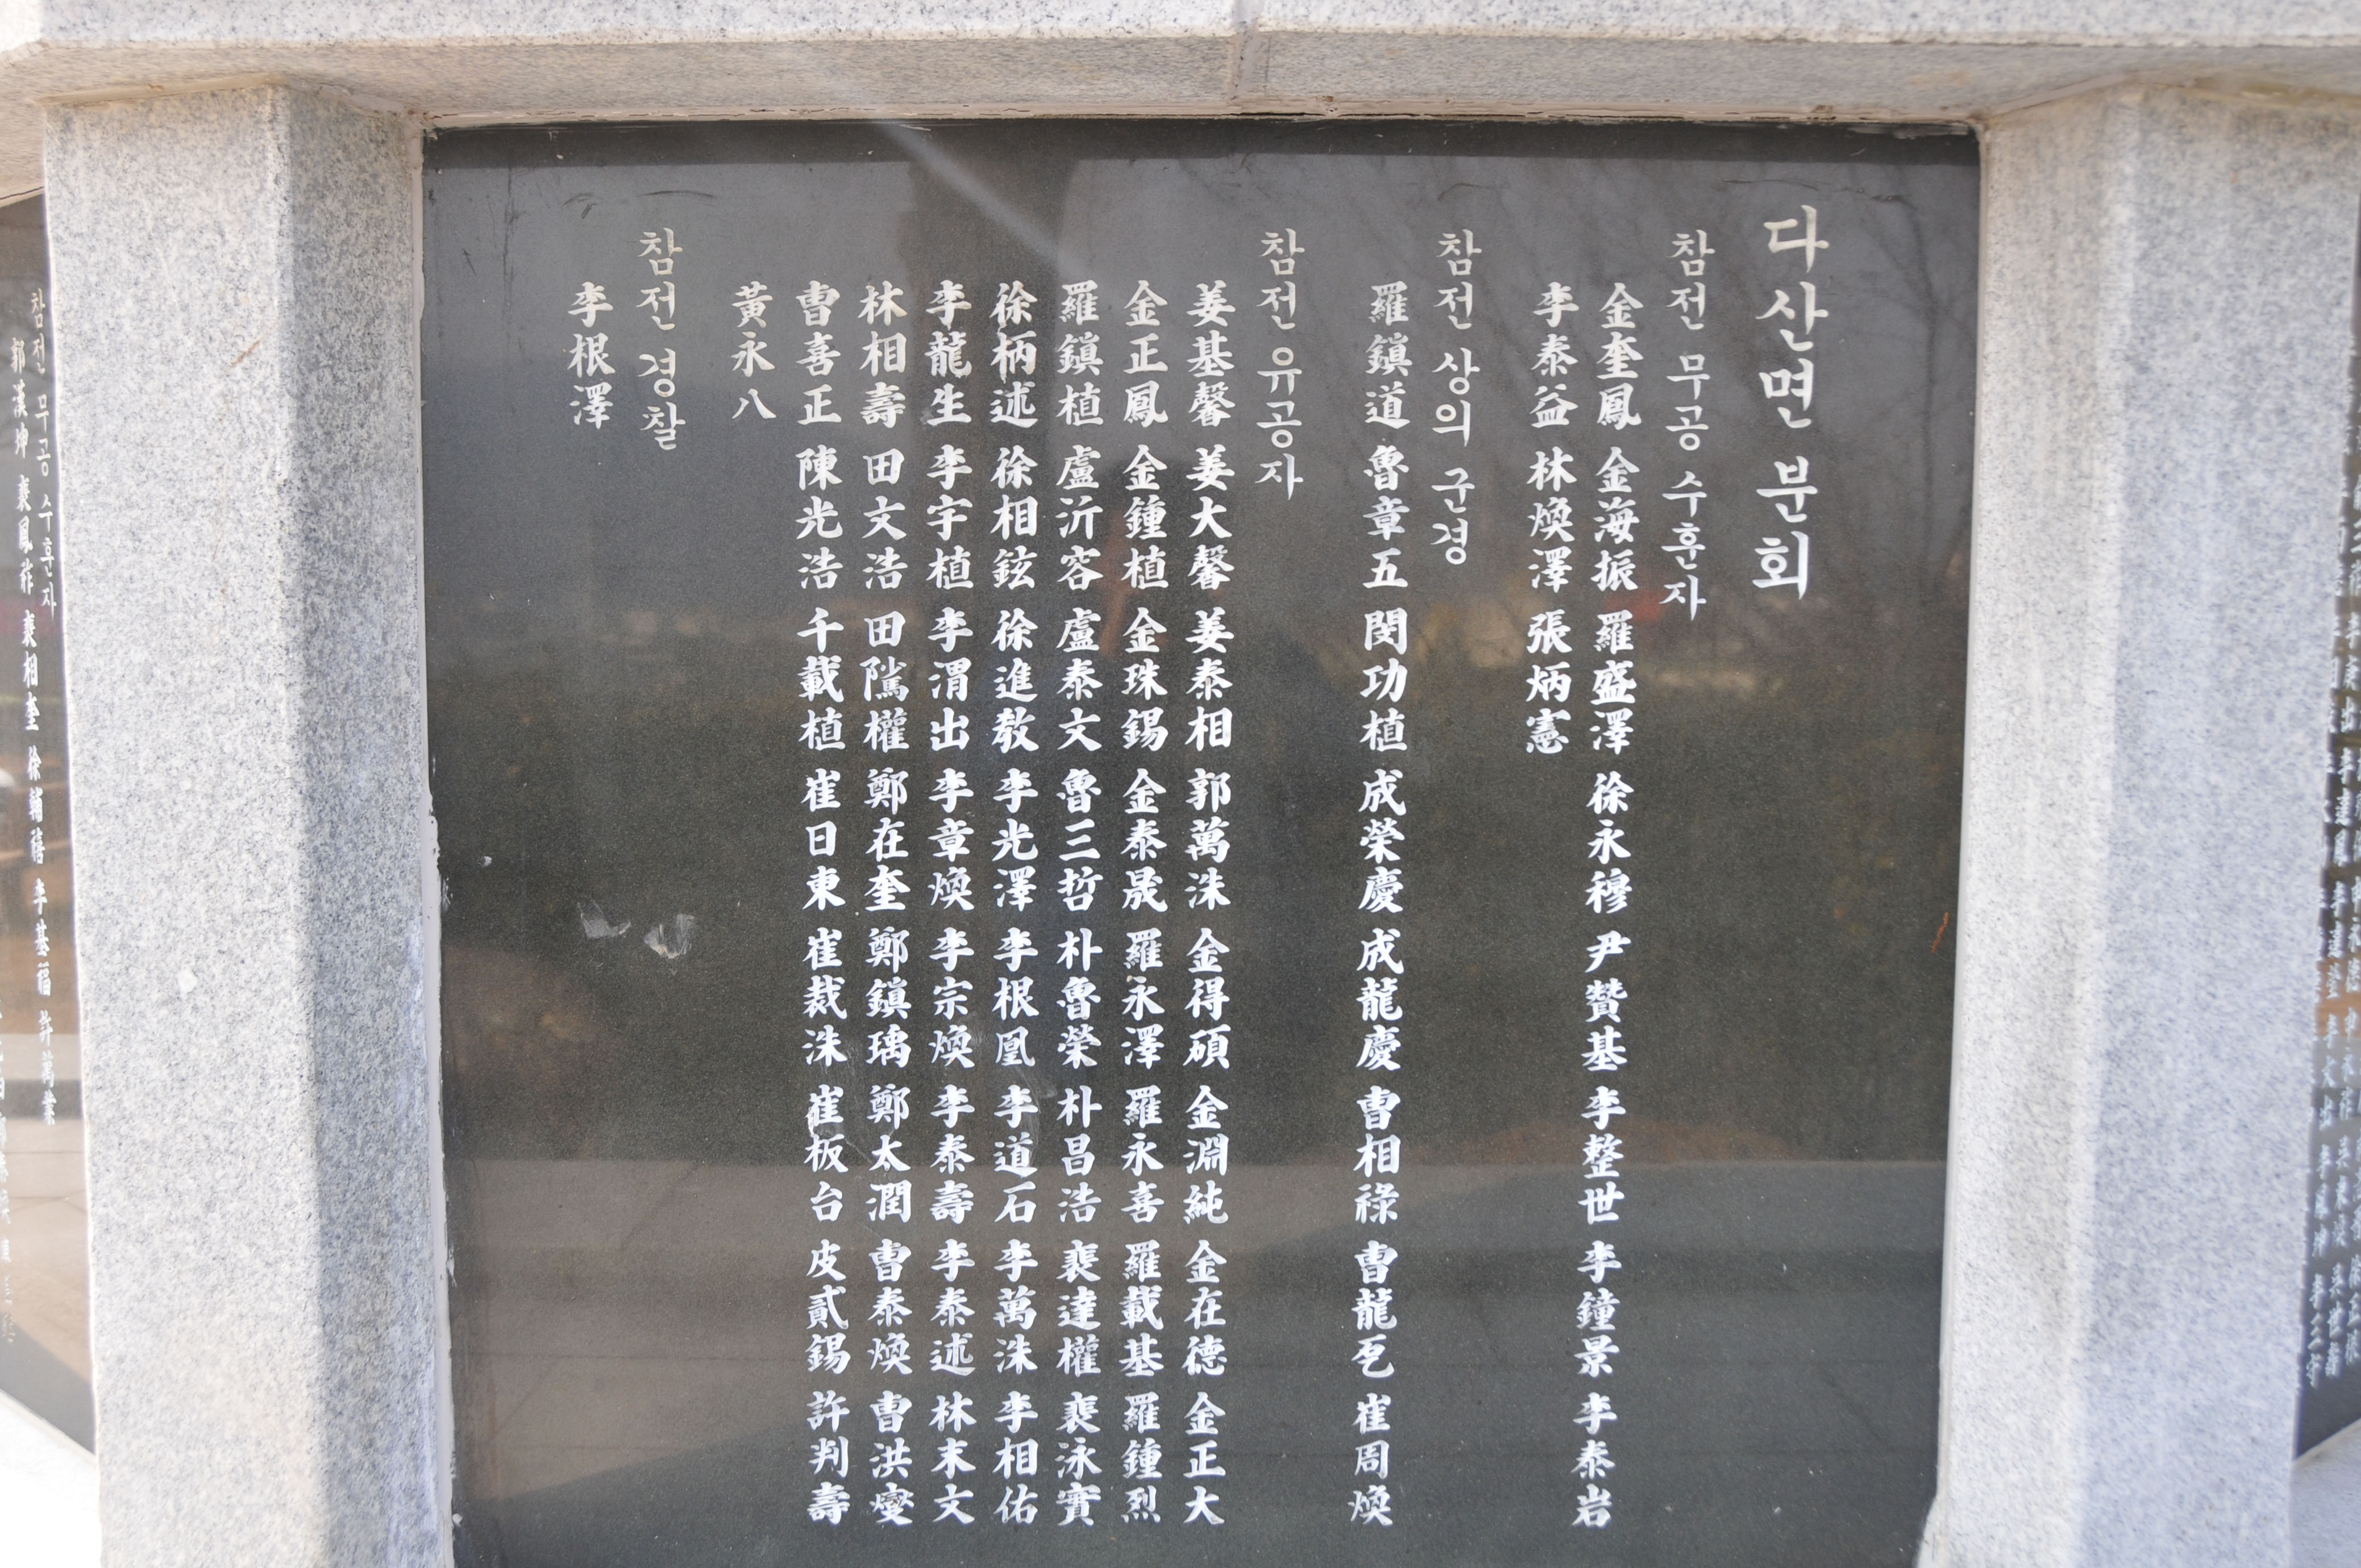 다산면 분회
참전 무공 수훈자
金奎鳳 金海振 羅盛澤 徐永穆 尹贊基 李整世 李鐘景 李泰岩
李泰益 林煥澤 張炳憲
참전 상의 군경
羅鎭道 魯章五 閔功植 成榮慶 成龍慶 曺相祿 曺龍乭 崔周煥
참전 유공자
姜基馨 姜大馨 姜泰相 郭萬洙 金得碩 金淵純 金在德 金正大
金正鳳 金鍾植 金珠錫 金泰晟 羅永澤 羅永喜 羅載基 羅鍾烈
羅鎭植 盧沂容 盧泰文 魯三哲 朴魯榮 朴昌浩 裵達權 裵泳實
徐柄述 徐相鉉 徐進敎 李光澤 李根凰 李道石 李萬洙 李相佑
李龍生 李宇植 李渭出 李章煥 李宗煥 李泰壽 李泰述 林末文
林相壽 田文浩 田隲權 鄭在奎 鄭鎭瑀 鄭太潤 曺泰煥 曺洪燮
曺喜正 陳光浩 千載植 崔日東 崔裁洙 崔板台 皮貳錫 許判壽
黃永八
참전 경찰
李根澤
참전 무공 수훈자
郭漢坤 裵鳳祚 裵相奎 徐輔禧 李基福 許萬業